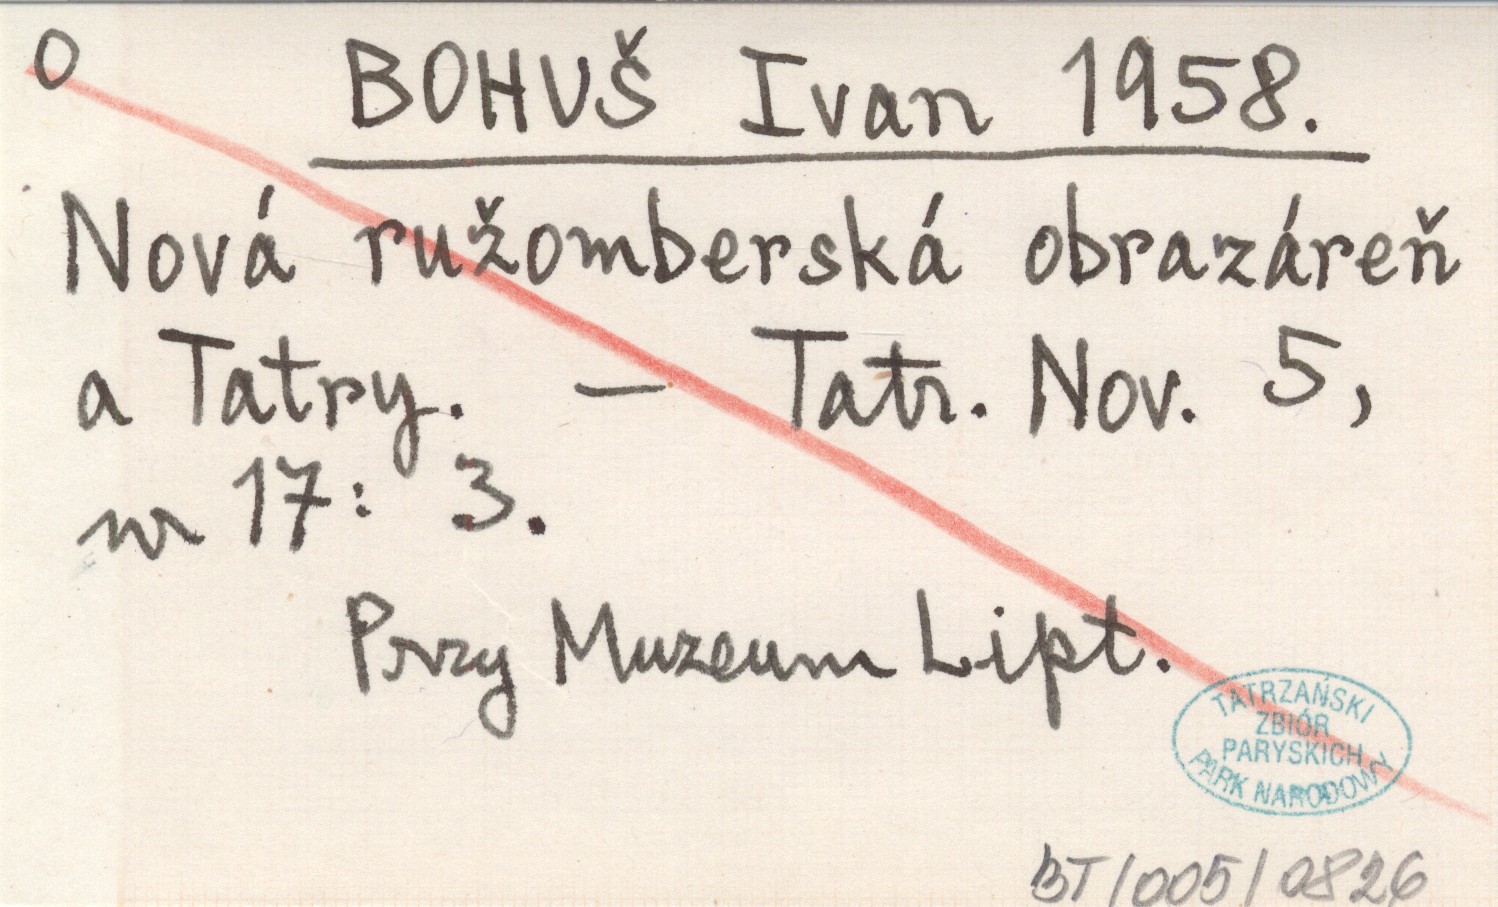 O
BOHUŠ Ivan 1958.
Nová ružomberská obrazáreň
a Tatry. — Tatr. Nov. 5,
nr 17: 3.
Przy Muzeum Lipt.
TATRZAŃSKI
ZBIÓR
PARYSKICH
PARK NARODOWY
BT/005/0826